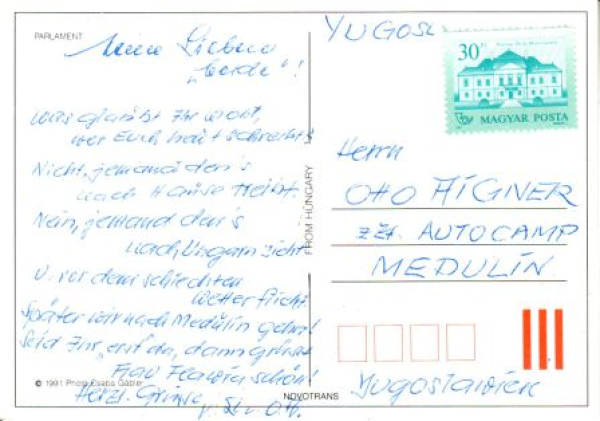 PARLAMENT
Meine Lieben
"beide"!
Was glaubt Ihr wohl,
wer Euch heut schreibt?
Nicht, jemand den's
nach Hause treibt.
Nein, jemand den's
nach Ungarn zieht
u. vor dem schlechten
Wetter flieht.
Später wir nach Medulin gehn!
Seid Ihr, erst da, dann
Frau schön!
Herzl. Grüsse
© 1991 Photo Csaba Gábler
NOVOTRANS
FROM HUNGARY
YUGOSL
30 Ft
MAGYAR POSTA
Herrn
OTTO AIGNER
zZt. AUTOCAMP
MEDULIN
Jugoslawien